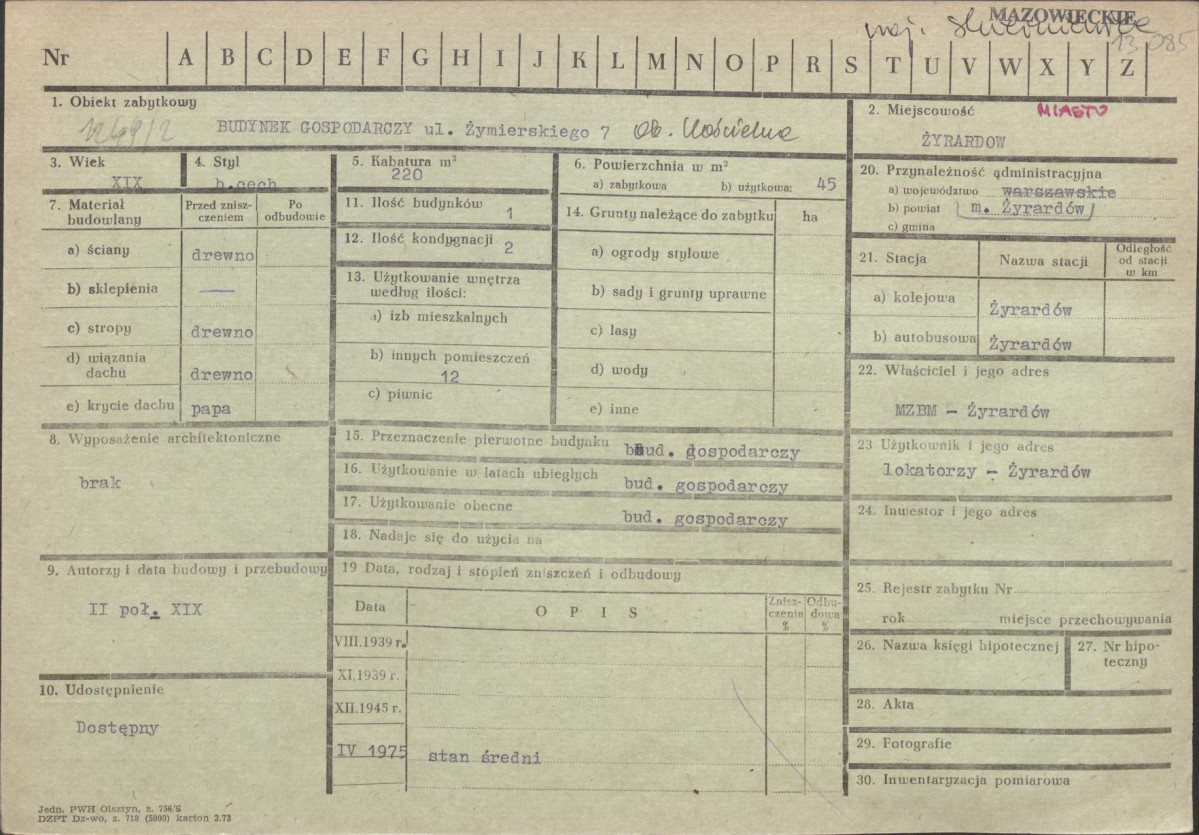 MAZOWIECKIE
woj. skierniewice
13 085
Nr A B C D E F G H I J K L M N O P R S T U V W X Y Z
1. Obiekt zabytkowy
1249/2 BUDYNEK GOSPODARCZY ul. Żymierskiego 7 Ob. Kościelna
2. Miejscowość MIASTO
ŻYRARDOW
3. Wiek
XIX
4. Styl
b.cech
5. Kabatura m³
220
6. Powierzchnia w m²
a) zabytkowa b) użytkowa: 45
7. Materiał budowlany
Przed znisz-
czeniem
Po
odbudowie
a) ściany drewno
b) sklepienia —
c) stropy drewno
d) wiązania
dachu drewno
e) krycie dachu papa
8. Wyposażenie architektoniczne
brak
9. Autorzy i data budowy i przebudowy
II poł. XIX
10. Udostępnienie
Dostępny
11. Ilość budynków 1
12. Ilość kondygnacji 2
13. Użytkowanie wnętrza
według ilości:
a) izb mieszkalnych
b) innych pomieszczeń
12
c) piwnic
14. Grunty należące do zabytku ha
a) ogrody stylowe
b) sady i grunty uprawne
c) lasy
d) wody
e) inne
15. Przeznaczenie pierwotne budynku bud. gospodarczy
16. Użytkowanie w latach ubiegłych bud. gospodarczy
17. Użytkowanie obecne bud. gospodarczy
18. Nadaje się do użycia na
19 Data, rodzaj i stopień zniszczeń i odbudowy
Data O P I S
Znisz-
czenia
%
Odbu-
dowa
%
VIII.1939 r.
XI.1939 r.
XII.1945 r.
IV 1975 stan średni
20. Przynależność administracyjna
a) województwo warszawskie
b) powiat m. Żyrardów
c) gmina
21. Stacja Nazwa stacji
Odległość
od stacji
w km
a) kolejowa Żyrardów
b) autobusowa Żyrardów
22. Właściciel i jego adres
MZBM - Żyrardów
23 Użytkownik i jego adres
lokatorzy - Żyrardów
24. Inwestor i jego adres
25. Rejestr zabytku Nr
rok miejsce przechowywania
26. Nazwa księgi hipotecznej
27. Nr hipo-
teczny
28. Akta
29. Fotografie
30. Inwentaryzacja pomiarowa
Jedn. PWH Olsztyn, z. 756/S
DZPT Dz-wo, z. 718 (5000) karton 3.73